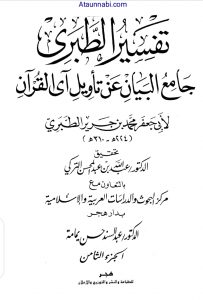 Ataunnabi.com
تفسير الطبري
جامع البيان عن تأويل آي القرآن
لأبي جعفر محمد بن جرير الطبري
(٢٢٤ هـ - ٣١٠ هـ)
تحقيق
الدكتور عبد الله بن عبد المحسن التركي
بالتعاون مع
مركز البحوث والدراسات العربية والإسلامية
بدار هجر
الدكتور عبد السند حسن يمامة
الجزء الثامن
هجر
للطباعة والنشر والتوزيع والإعلان